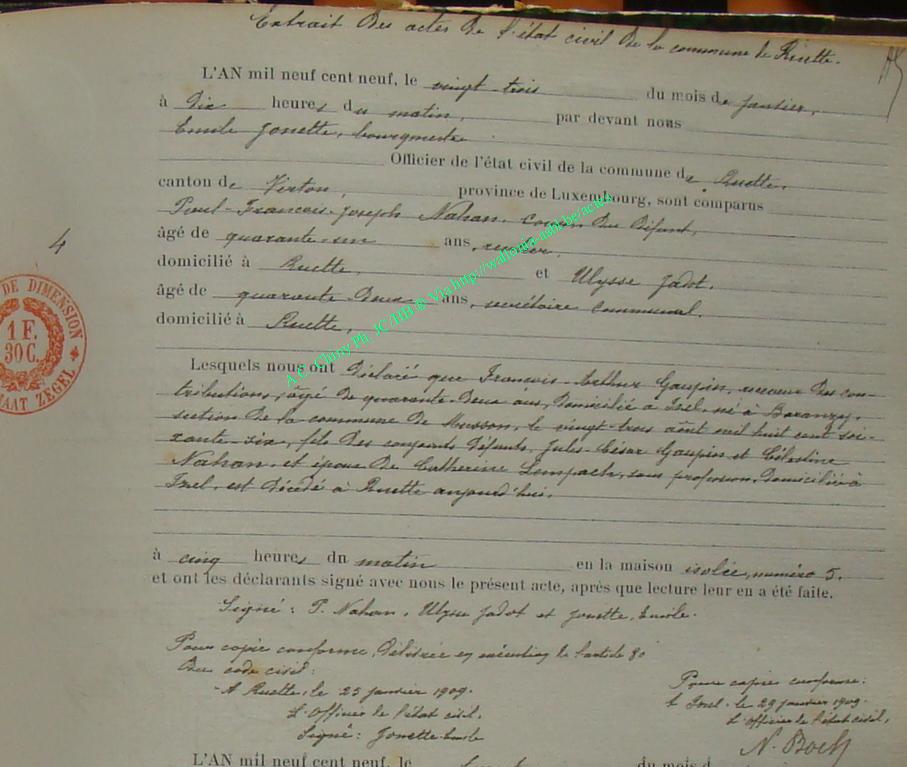 Extrait des actes de l'état civil de la commune de Ruette.
L'AN mil neuf cent neuf, le vingt-trois du mois de janvier,
à dix heures du matin, par devant nous
Emile Jonette, bourgmestre
Officier de l'état civil de la commune de Ruette,
canton de Virton, province de Luxembourg, sont comparus
Paul-François-Joseph Nahan, cousin du défunt,
âgé de quarante-un ans, rentier,
domicilié à Ruette, et Ulysse Jadot,
âgé de quarante-deux ans, secrétaire communal,
domicilié à Ruette,
4
DE DIMENSION
1 F.
30 C.
MAAT ZEGEL
A C. Chiny Ph. JC/HB @ Via http://wallonia-asbl.be/actes
Lesquels nous ont déclaré que François-Arthur Goupin, receveur des con-
tributions, âgé de quarante-deux ans, domicilié à Izel, né à Baranzy,
section de la commune de Musson, le vingt-trois août mil huit cent soi-
xante-six, fils des conjoints défunts, Jules-César Goupin et Célestine
Nahan, et époux de Catherine Lempach, sans profession, domiciliée à
Izel, est décédé à Ruette aujourd'hui,
à cinq heures du matin en la maison isolée, numéro 5.
et ont les déclarants signé avec nous le présent acte, après que lecture leur en a été faite.
Signé: P. Nahan, Ulysse Jadot et Jonette, Emile.
Pour copie conforme, délivrée en exécution de l'article 80
du code civil:
A Ruette, le 25 janvier 1909.
L'Officier de l'état civil,
Signé: Jonette Emile
Pour copie conforme:
A Izel, le 29 janvier 1909.
L'officier de l'état civil,
N. Bock
L'AN mil neuf cent neuf, le du mois d